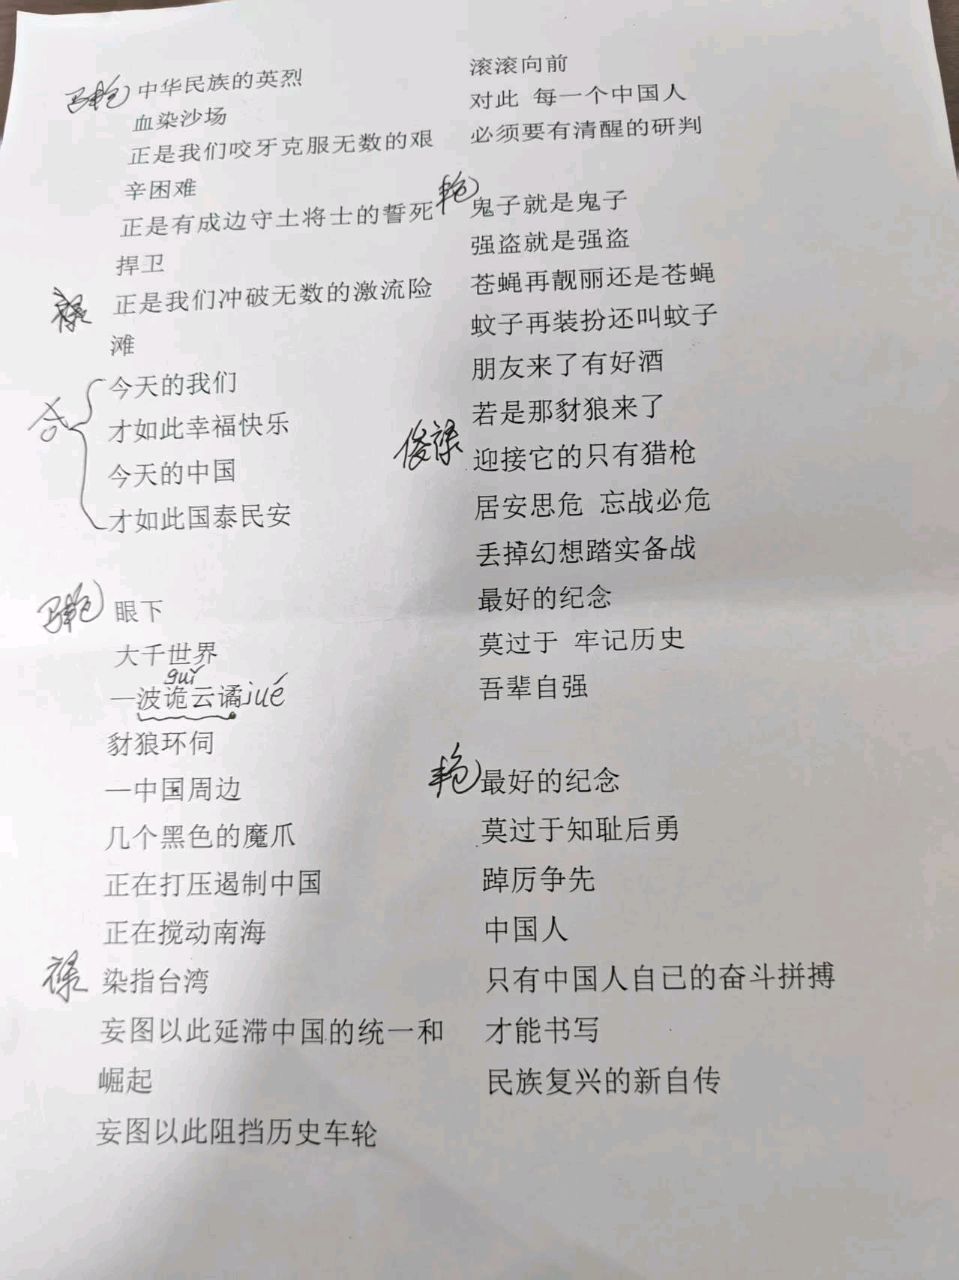 中华民族的英烈
血染沙场
正是我们咬牙克服无数的艰
辛困难
正是有成边守土将士的誓死
捍卫
禄 正是我们冲破无数的激流险
滩
今天的我们
合 才如此幸福快乐
今天的中国
才如此国泰民安
眼下
大千世界
guǐ
—波诡云谲jué
豺狼环伺
—中国周边
几个黑色的魔爪
正在打压遏制中国
正在搅动南海
禄 染指台湾
妄图以此延滞中国的统一和
崛起
妄图以此阻挡历史车轮
滚滚向前
对此 每一个中国人
必须要有清醒的研判
艳 鬼子就是鬼子
强盗就是强盗
苍蝇再靓丽还是苍蝇
蚊子再装扮还叫蚊子
朋友来了有好酒
若是那豺狼来了
俊禄 迎接它的只有猎枪
居安思危 忘战必危
丢掉幻想踏实备战
最好的纪念
莫过于 牢记历史
吾辈自强
艳 最好的纪念
莫过于知耻后勇
踔厉争先
中国人
只有中国人自己的奋斗拼搏
才能书写
民族复兴的新自传